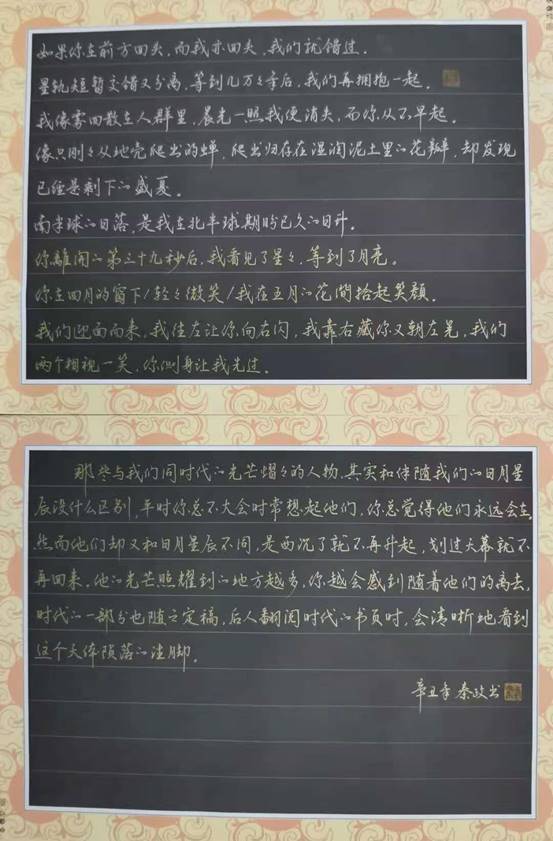 如果你在前方回头，而我亦回头，我们就错过。
星轨短暂交错又分离，等到几万万年后，我们再拥抱一起。
我像雾四散在人群里，晨光一照我便消失，而你，从不早起。
像只刚刚从地壳爬出的蝉，爬出归存在湿润泥土里的花瓣，却发现
已经是剩下的盛夏。
南半球的日落，是我在北半球期盼已久的日升。
你離開的第三十九秒后，我看见了星星，等到了月亮。
你在四月的窗下/轻轻微笑/我在五月的花間拾起笑顔。
我们迎面而来，我往左让你向右闪，我靠右藏你又朝左晃，我们
两个相视一笑，你侧身让我先过。
那些与我们同时代的光芒熠熠的人物，其实和伴随我们的日月星
辰没什么区别，平时你总不大会时常想起他们，你总觉得他们永远会在，
然而他们却又和日月星辰不同，是西沉了就不再升起，划过天幕就不
再回来。他的光芒照耀到的地方越多，你越会感到随着他们的离去，
时代的一部分也随之定稿，后人翻阅时代的书页时，会清晰地看到
这个天体陨落的注脚。
辛丑年 秦政书